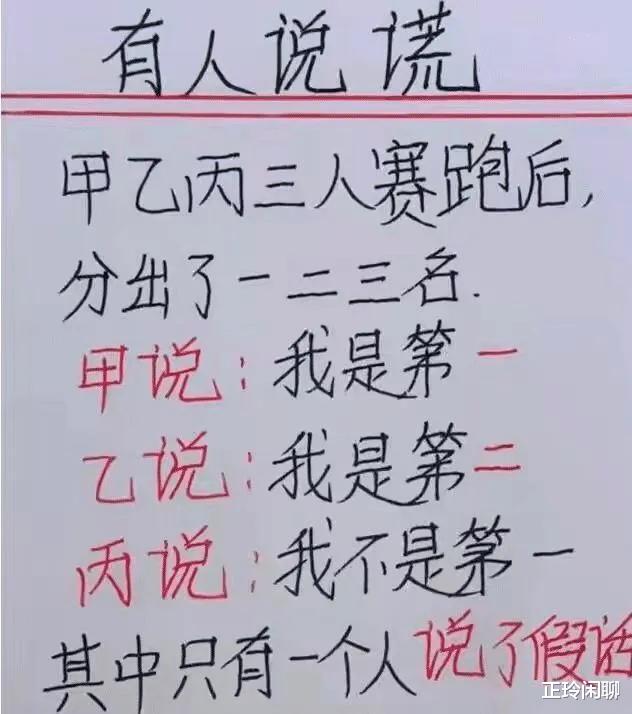 有人说谎
甲乙丙三人赛跑后,
分出了一二三名.
甲说:我是第一
乙说:我是第二
丙说:我不是第一
其中只有一个人说了假话
正玲闲聊